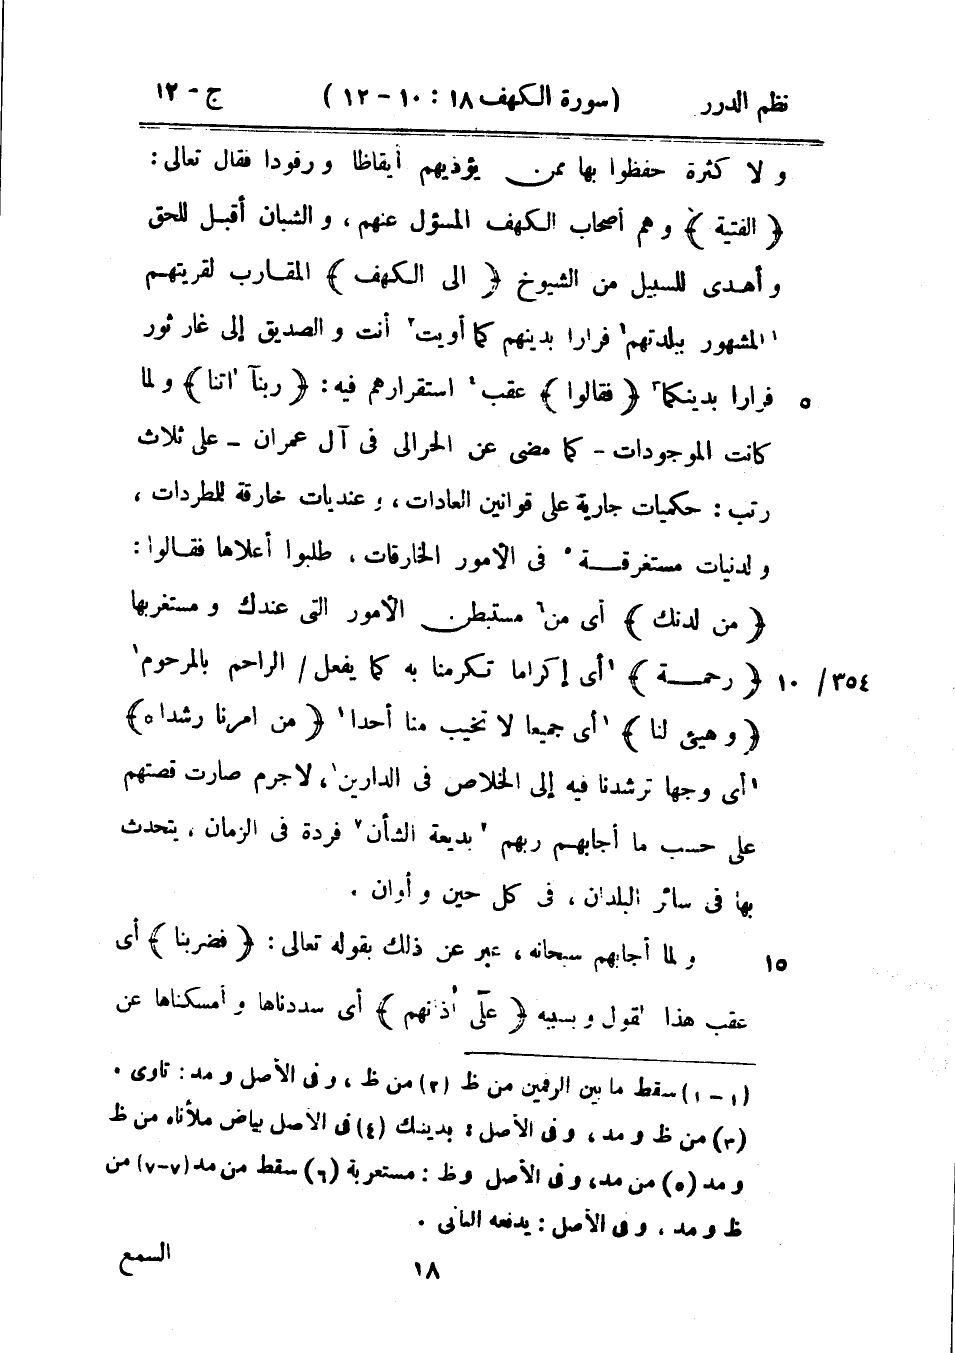 نظم الدرر (سورة الكهف ١٨ : ١٠ - ١٢) ج - ١٢
و لا كثرة حفظوا بها ممن يؤذيهم أيقاظا و رقودا فقال تعالى :
﴿ الفتية ﴾ و هم أصحاب الكهف المسؤل عنهم ، و الشبان أقبل للحق
و أهدى للسبيل من الشيوخ ﴿ الى الكهف ﴾ المقارب لقريتهم
١المشهور ببلدتهم١ فرارا بدينهم كما أويت٢ أنت و الصديق إلى غار ثور
٥ فرارا بدينكما٣ ﴿ فقالوا ﴾ عقب٤ استقرارهم فيه : ﴿ ربنآ اٰتنا ﴾ و لما
كانت الموجودات - كما مضى عن الحرالى فى آل عمران - على ثلاث
رتب : حكميات جارية على قوانين العادات ، و عنديات خارقة للمطردات ،
و لدنيات مستغرقة٥ فى الأمور الخارقات ، طلبوا أعلاها فقالوا :
﴿ من لدنك ﴾ أى من٦ مستبطن الأمور التى عندك و مستغربها
٣٥٤ / ١٠ ﴿ رحمة ﴾ ١أى إكراما تكرمنا به كما يفعل / الراحم بالمرحوم١
﴿ و هيئ لنا ﴾ ١أى جميعا لا تخيب منا أحدا١ ﴿ من امرنا رشدا ٥ ﴾
١أى وجها ترشدنا فيه إلى الخلاص فى الدارين١ ، لا جرم صارت قصتهم
على حسب ما أجابهم ربهم ٧بديعة الشأن٧ فردة فى الزمان ، يتحدث
بها فى سائر البلدان ، فى كل حين و أوان .
١٥ و لما أجابهم سبحانه ، عبر عن ذلك بقوله تعالى : ﴿ فضربنا ﴾ أى
عقب هذا القول و بسببه ﴿ علىٓ اٰذانهم ﴾ أى سددناها و أمسكناها عن
(١ - ١) سقط ما بين الرقمين من ظ (٢) من ظ ، و فى الأصل و مد : تاوى .
(٣) من ظ و مد ، و فى الأصل : بدينك (٤) فى الأصل بياض ملأناه من ظ
و مد (٥) من مد، و فى الأصل وظ : مستعربة (٦) سقط من مد (٧-٧) من
ظ و مد ، و فى الأصل : يدفعه
السمع
١٨